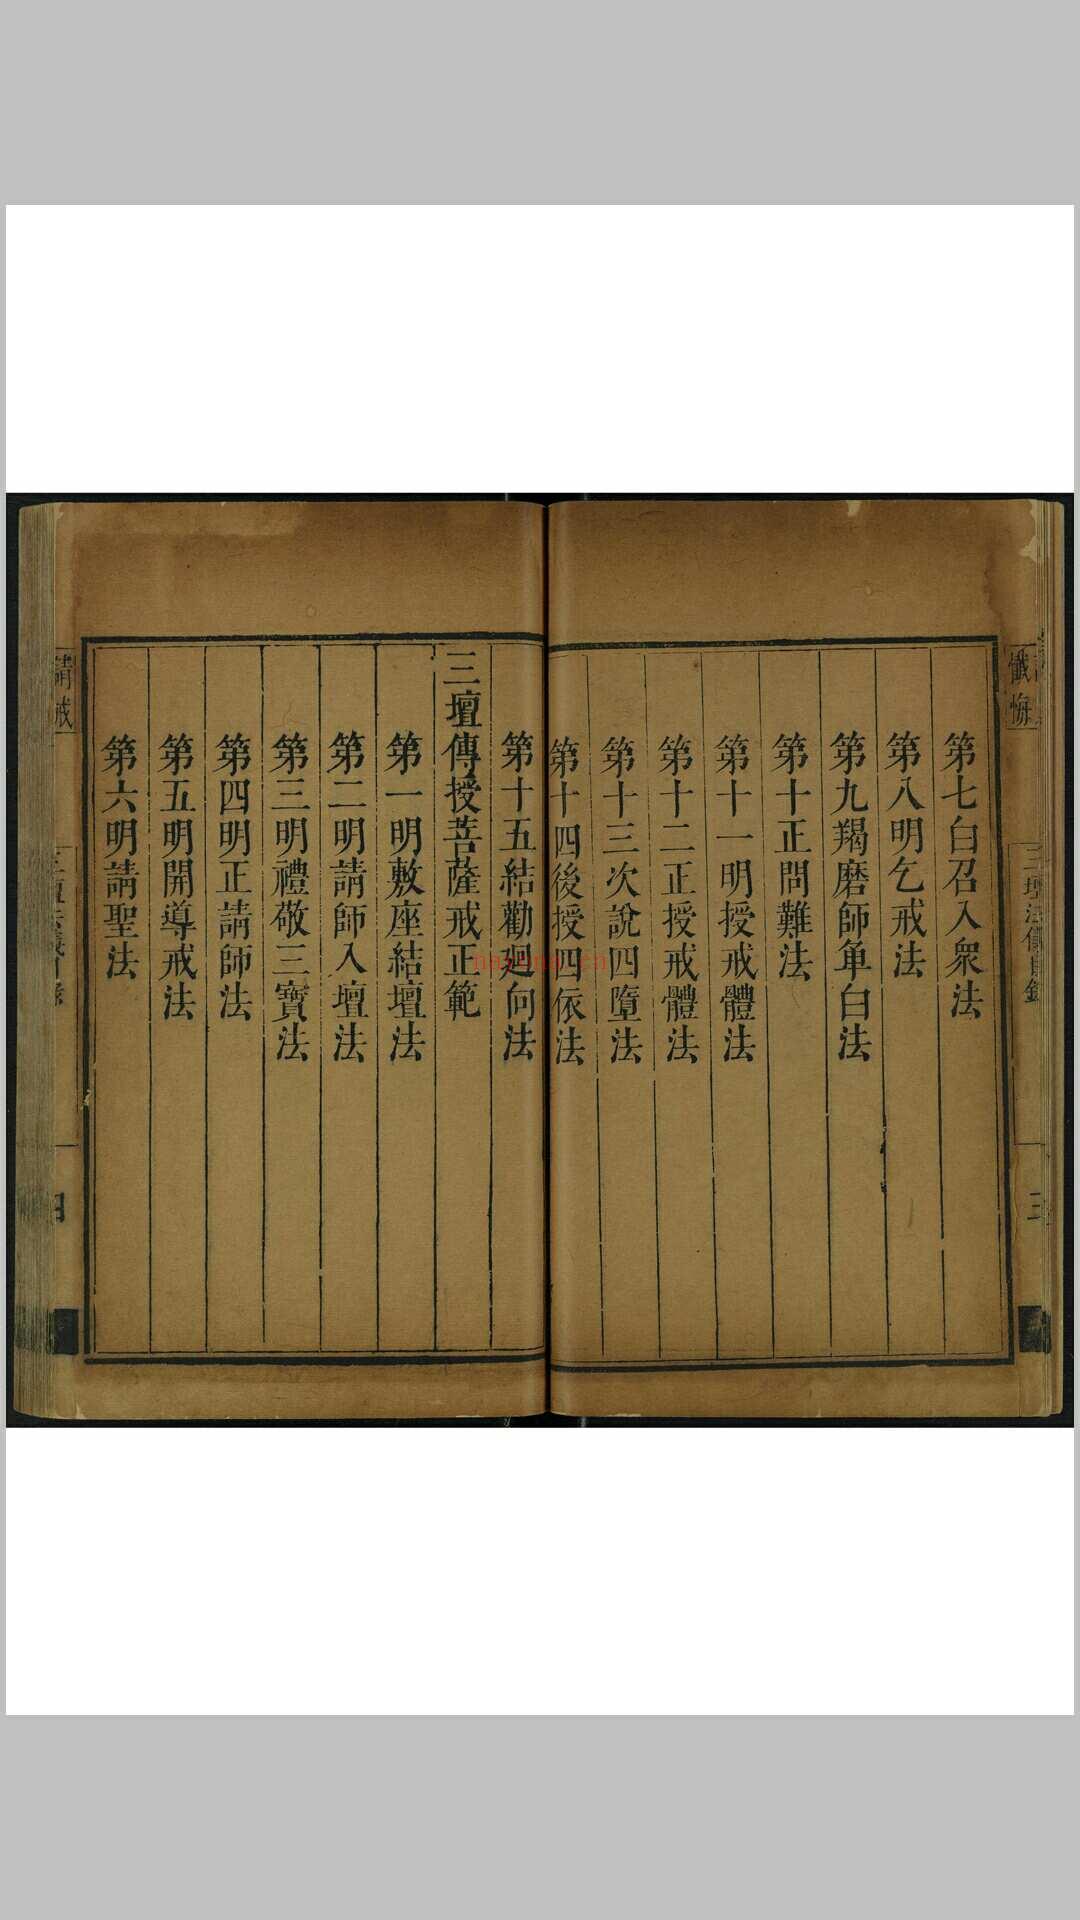 懺悔
三壇法儀目錄
三
第七白召入衆法
第八明乞戒法
第九羯磨師单白法
第十正問難法
第十一明授戒體法
第十二正授戒體法
第十三次說四墮法
第十四後授四依法
第十五結勸廻向法
三壇傳授菩薩戒正範
第一明敷座結壇法
第二明請師入壇法
第三明禮敬三寶法
第四明正請師法
第五明開導戒法
第六明請聖法
請戒